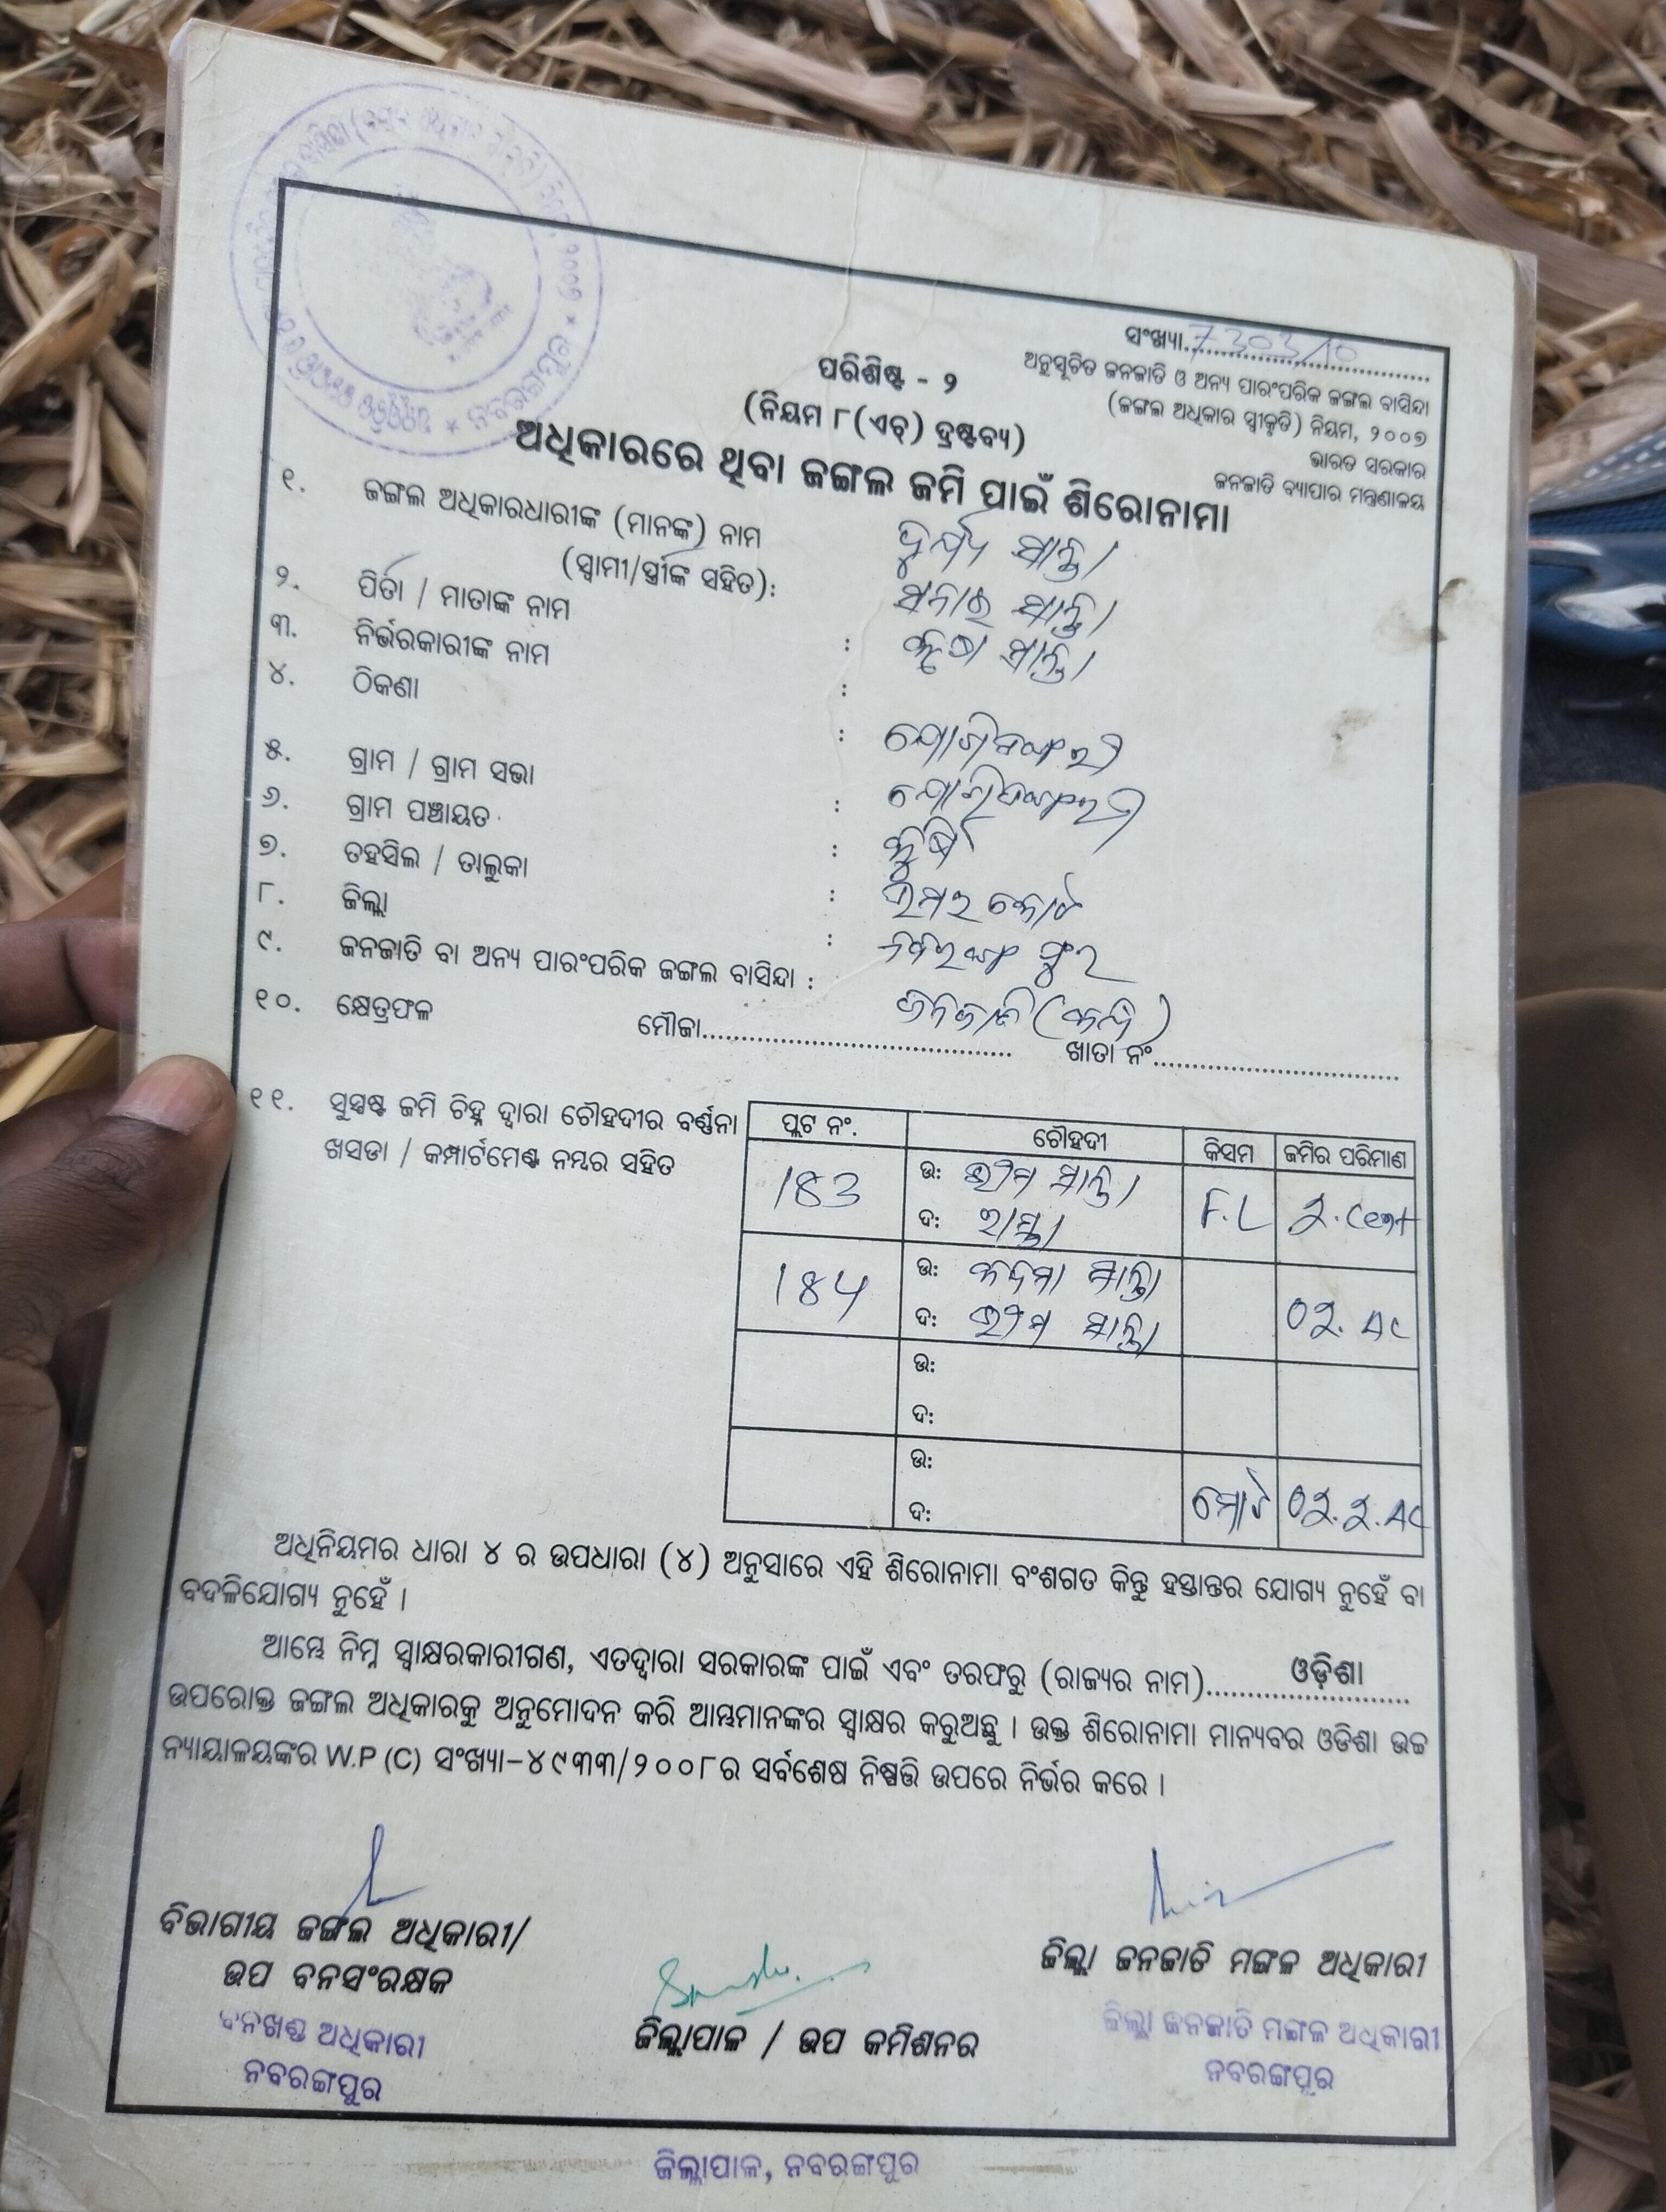 ସଂଖ୍ୟା. 7303/10
ଅନୁସୂଚିତ ଜନଜାତି ଓ ଅନ୍ୟ ପାରଂପରିକ ଜଙ୍ଗଲ ବାସିନ୍ଦା
(ଜଙ୍ଗଲ ଅଧିକାର ସ୍ୱୀକୃତି) ନିୟମ, ୨୦୦୭
ଭାରତ ସରକାର
ଜନଜାତି ବ୍ୟାପାର ମନ୍ତ୍ରଣାଳୟ
ପରିଶିଷ୍ଟ - ୨
(ନିୟମ ୮(ଏଚ୍) ଦ୍ରଷ୍ଟବ୍ୟ)
ଅଧିକାରରେ ଥିବା ଜଙ୍ଗଲ ଜମି ପାଇଁ ଶିରୋନାମା
୧. ଜଙ୍ଗଲ ଅଧିକାରଧାରୀଙ୍କ (ମାନଙ୍କ) ନାମ
(ସ୍ୱାମୀ/ସ୍ତ୍ରୀଙ୍କ ସହିତ): ସାନ୍ତା
୨. ପିତା / ମାତାଙ୍କ ନାମ : ସନାଇ ସାନ୍ତା
୩. ନିର୍ଭରକାରୀଙ୍କ ନାମ : ସାନ୍ତା
୪. ଠିକଣା :
୫. ଗ୍ରାମ / ଗ୍ରାମ ସଭା :
୬. ଗ୍ରାମ ପଞ୍ଚାୟତ :
୭. ତହସିଲ / ତାଲୁକା : ଉମରକୋଟ
୮. ଜିଲ୍ଲା : ନବରଙ୍ଗପୁର
୯. ଜନଜାତି ବା ଅନ୍ୟ ପାରଂପରିକ ଜଙ୍ଗଲ ବାସିନ୍ଦା : ଜନଜାତି
୧୦. କ୍ଷେତ୍ରଫଳ ମୌଜା........ ଖାତା ନଂ........
୧୧. ସୁସ୍ପଷ୍ଟ ଜମି ଚିହ୍ନ ଦ୍ୱାରା ଚୌହଦୀର ବର୍ଣ୍ଣନା
ଖସଡା / କମ୍ପାର୍ଟମେଣ୍ଟ ନମ୍ବର ସହିତ
ପ୍ଲଟ ନଂ. ଚୌହଦୀ କିସମ ଜମିର ପରିମାଣ
183 ଉ: ଭୀମ ସାନ୍ତା F.L 2. cent
ଦ: ରାସ୍ତା
184 ଉ: କଦମା ସାନ୍ତା 02. AC
ଦ: ଭୀମ ସାନ୍ତା
ଉ:
ଦ:
ଉ:
ଦ: ମୋଟ 02.2.AC
ଅଧିନିୟମର ଧାରା ୪ ର ଉପଧାରା (୪) ଅନୁସାରେ ଏହି ଶିରୋନାମା ବଂଶଗତ କିନ୍ତୁ ହସ୍ତାନ୍ତର ଯୋଗ୍ୟ ନୁହେଁ ବା
ବଦଳିଯୋଗ୍ୟ ନୁହେଁ ।
ଆମ୍ଭେ ନିମ୍ନ ସ୍ୱାକ୍ଷରକାରୀଗଣ, ଏତଦ୍ୱାରା ସରକାରଙ୍କ ପାଇଁ ଏବଂ ତରଫରୁ (ରାଜ୍ୟର ନାମ)........ ଓଡ଼ିଶା
ଉପରୋକ୍ତ ଜଙ୍ଗଲ ଅଧିକାରକୁ ଅନୁମୋଦନ କରି ଆମ୍ଭମାନଙ୍କର ସ୍ୱାକ୍ଷର କରୁଅଛୁ । ଉକ୍ତ ଶିରୋନାମା ମାନ୍ୟବର ଓଡିଶା ଉଚ୍ଚ
ନ୍ୟାୟାଳୟଙ୍କର W.P (C) ସଂଖ୍ୟା-୪୯୩୩/୨୦୦୮ର ସର୍ବଶେଷ ନିଷ୍ପତ୍ତି ଉପରେ ନିର୍ଭର କରେ ।
ବିଭାଗୀୟ ଜଙ୍ଗଲ ଅଧିକାରୀ/
ଉପ ବନସଂରକ୍ଷକ
ବନଖଣ୍ଡ ଅଧିକାରୀ
ନବରଙ୍ଗପୁର
ଜିଲ୍ଲାପାଳ / ଉପ କମିଶନର
ଜିଲ୍ଲା ଜନଜାତି ମଙ୍ଗଳ ଅଧିକାରୀ
ଜିଲ୍ଲା ଜନଜାତି ମଙ୍ଗଳ ଅଧିକାରୀ
ନବରଙ୍ଗପୁର
ଜିଲ୍ଲାପାଳ, ନବରଙ୍ଗପୁର